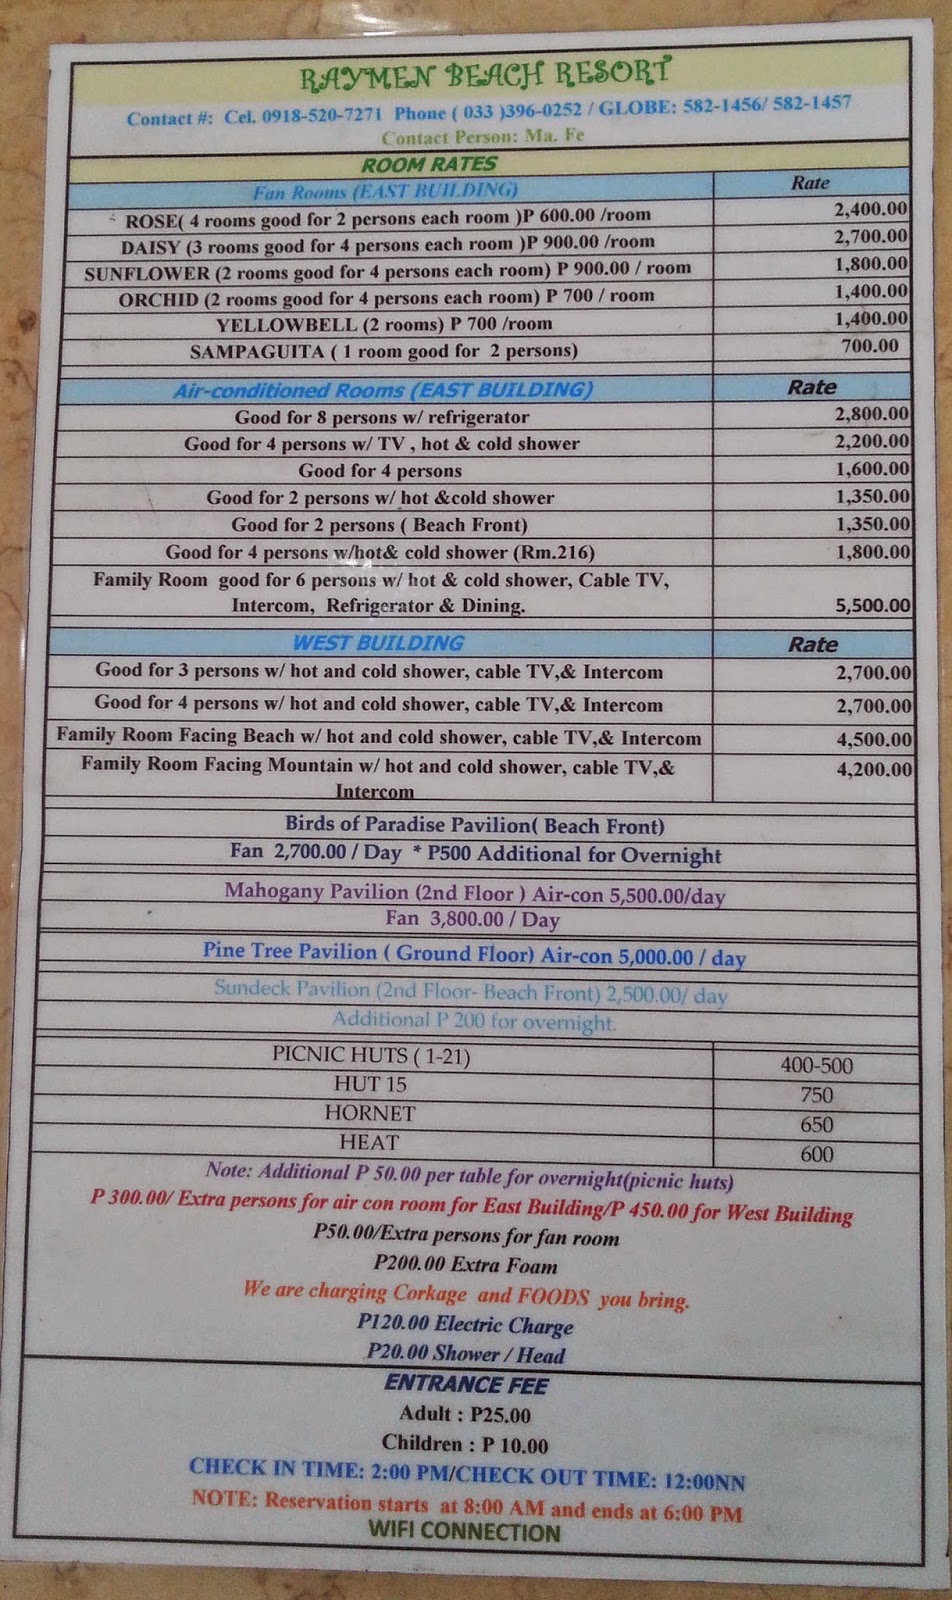 RAYMEN BEACH RESORT
Contact #: Cel. 0918-520-7271 Phone ( 033 )396-0252 / GLOBE: 582-1456/ 582-1457
Contact Person: Ma. Fe
ROOM RATES
Fan Rooms (EAST BUILDING) Rate
ROSE( 4 rooms good for 2 persons each room )P 600.00 /room 2,400.00
DAISY (3 rooms good for 4 persons each room )P 900.00 /room 2,700.00
SUNFLOWER (2 rooms good for 4 persons each room) P 900.00 / room 1,800.00
ORCHID (2 rooms good for 4 persons each room) P 700 / room 1,400.00
YELLOWBELL (2 rooms) P 700 /room 1,400.00
SAMPAGUITA ( 1 room good for 2 persons) 700.00
Air-conditioned Rooms (EAST BUILDING) Rate
Good for 8 persons w/ refrigerator 2,800.00
Good for 4 persons w/ TV , hot & cold shower 2,200.00
Good for 4 persons 1,600.00
Good for 2 persons w/ hot &cold shower 1,350.00
Good for 2 persons ( Beach Front) 1,350.00
Good for 4 persons w/hot& cold shower (Rm.216) 1,800.00
Family Room good for 6 persons w/ hot & cold shower, Cable TV,
Intercom, Refrigerator & Dining. 5,500.00
WEST BUILDING Rate
Good for 3 persons w/ hot and cold shower, cable TV,& Intercom 2,700.00
Good for 4 persons w/ hot and cold shower, cable TV,& Intercom 2,700.00
Family Room Facing Beach w/ hot and cold shower, cable TV,& Intercom 4,500.00
Family Room Facing Mountain w/ hot and cold shower, cable TV,& 4,200.00
Intercom
Birds of Paradise Pavilion( Beach Front)
Fan 2,700.00 / Day * P500 Additional for Overnight
Mahogany Pavilion (2nd Floor ) Air-con 5,500.00/day
Fan 3,800.00 / Day
Pine Tree Pavilion ( Ground Floor) Air-con 5,000.00 / day
Sundeck Pavilion (2nd Floor- Beach Front) 2,500.00/ day
Additional P 200 for overnight.
PICNIC HUTS ( 1-21) 400-500
HUT 15 750
HORNET 650
HEAT 600
Note: Additional P 50.00 per table for overnight(picnic huts)
P 300.00/ Extra persons for air con room for East Building/P 450.00 for West Building
P50.00/Extra persons for fan room
P200.00 Extra Foam
We are charging Corkage and FOODS you bring.
P120.00 Electric Charge
P20.00 Shower / Head
ENTRANCE FEE
Adult : P25.00
Children : P 10.00
CHECK IN TIME: 2:00 PM/CHECK OUT TIME: 12:00NN
NOTE: Reservation starts at 8:00 AM and ends at 6:00 PM
WIFI CONNECTION